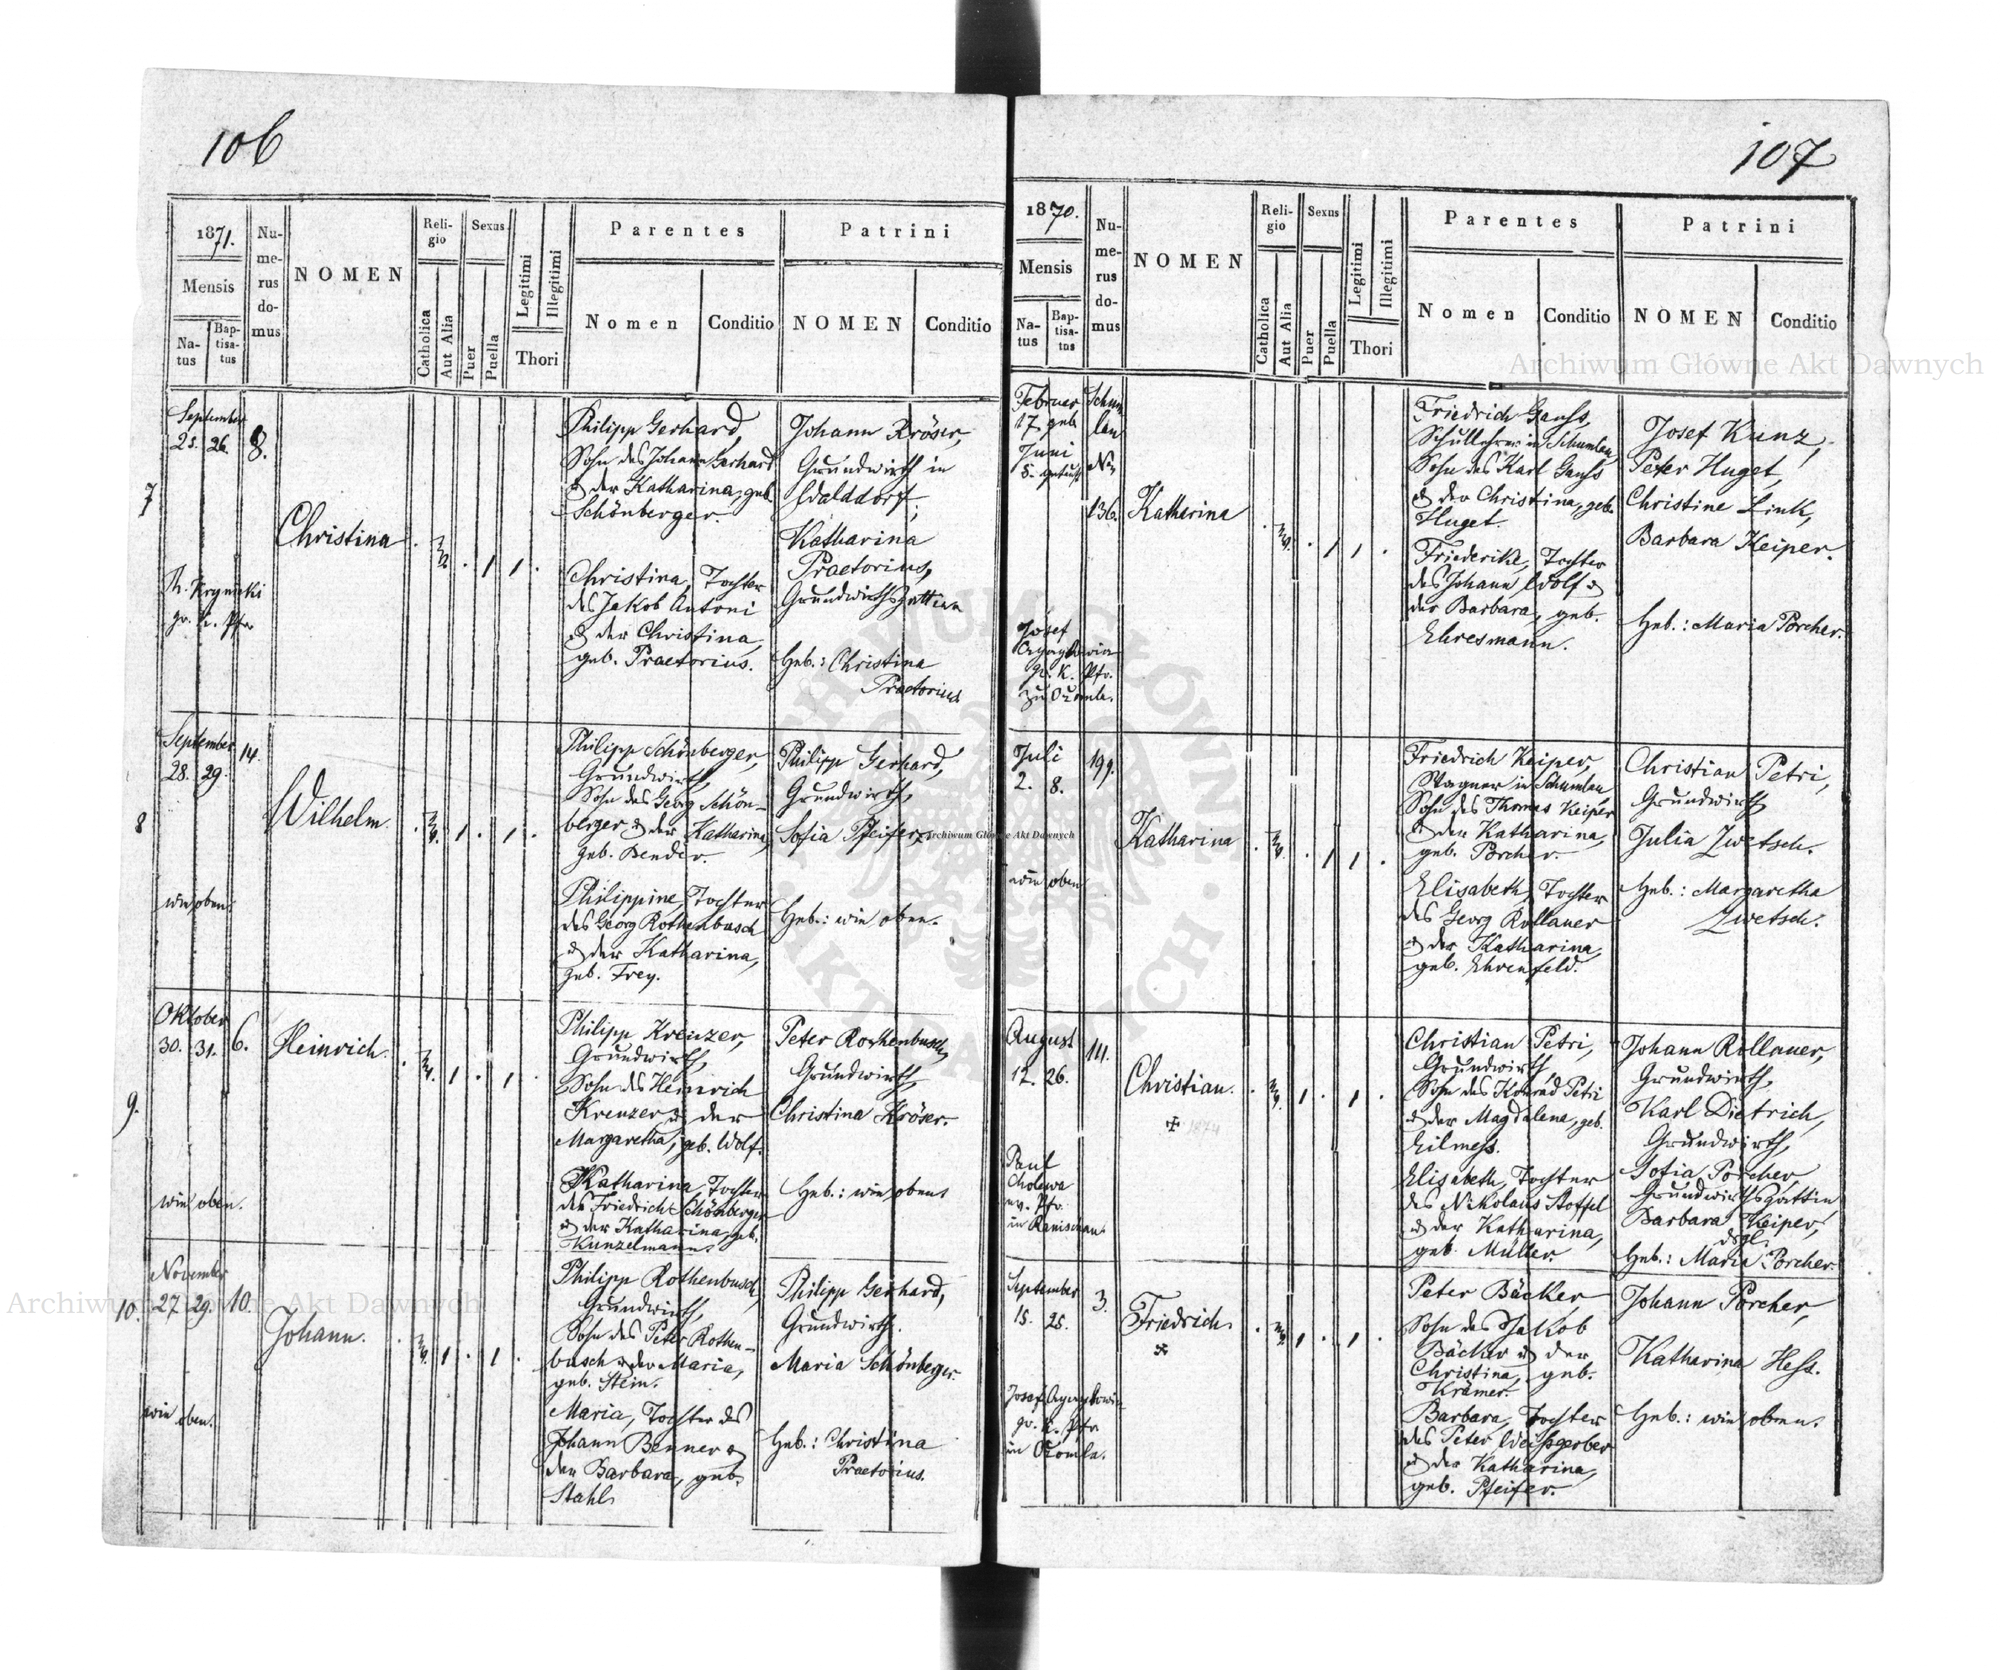 106
1871.
Mensis
Na-
tus
Bap-
tisa-
tus
Nu-
me-
rus
do-
mus
NOMEN
Reli-
gio
Catholica
Aut Alia
Sexus
Puer
Puella
Legitimi
Illegitimi
Thori
Parentes
Nomen
Conditio
Patrini
NOMEN
Conditio
7
September
25. 26.
8.
Christina
Philipp Gerhard,
Sohn des Johann Gerhard
& der Katharina, geb.
Schönberger.
Christina, Tochter
des Jakob Antoni
& der Christina,
geb. Praetorius.
Johann Kröser,
Grundwirth in
Walddorf;
Katharina
Praetorius,
Grundwirthsgattin
Heb.: Christina
Praetorius
Th. Krynicki
gr. k. Pfr.
8
September
28. 29.
14.
Wilhelm.
Philipp Schönberger,
Grundwirth,
Sohn des Georg Schön-
berger & der Katharina,
geb. Bender.
Philippine, Tochter
des Georg Rothenbusch
& der Katharina,
geb. Frey.
Philipp Gerhard,
Grundwirth,
Sofia Pfeifer.
Heb.: wie oben.
wie oben.
9.
Oktober
30. 31.
6.
Heinrich.
Philipp Kreuzer,
Grundwirth,
Sohn des Heinrich
Kreuzer & der
Margaretha, geb. Wolf.
Katharina, Tochter
des Friedrich Schönberger
& der Katharina, geb.
Kunzelmann.
Peter Rothenbusch,
Grundwirth,
Christina Kröser.
Heb.: wie oben.
wie oben.
10.
November
27. 29.
10.
Johann.
Philipp Rothenbusch,
Grundwirth,
Sohn des Peter Rothen-
busch & der Maria,
geb. Stein.
Maria, Tochter des
Johann Benner &
der Barbara, geb.
Stahl.
Philipp Gerhard,
Grundwirth.
Maria Schönberger.
Heb.: Christina
Praetorius.
wie oben.
107
1870.
Mensis
Na-
tus
Bap-
tisa-
tus
Nu-
me-
rus
do-
mus
NOMEN
Reli-
gio
Catholica
Aut Alia
Sexus
Puer
Puella
Legitimi
Illegitimi
Thori
Parentes
Nomen
Conditio
Patrini
NOMEN
Conditio
Februar
17. geb.
Juni
5. getauft
Schum
lau
No
136.
Katharina
Friedrich Gauss,
Schullehrer in Schumlau,
Sohn des Karl Gauss
& der Christina, geb.
Huget.
Friederike, Tochter
des Johann Wolf &
der Barbara, geb.
Ehresmann.
Josef Kunz,
Peter Huget,
Christine Link,
Barbara Keiper.
Heb.: Maria Porcher.
Josef
gr. k. Pfr.
Juli
2. 8.
199.
Katharina
Friedrich Keiper,
Wagner in Schumlau,
Sohn des Thomas Keiper
& der Katharina,
geb. Porcher.
Elisabeth, Tochter
des Georg Rollauer
& der Katharina,
geb. Ehrenfeld.
Christian Petri,
Grundwirth,
Julia Zwetsch.
Heb.: Margaretha
Zwetsch.
wie oben
August
12. 26.
111.
Christian.
1874
Christian Petri,
Grundwirth,
Sohn des Konrad Petri
& der Magdalena, geb.
Eilmess.
Elisabeth, Tochter
des Nikolaus Stoffel
& der Katharina,
geb. Müller.
Johann Rollauer,
Grundwirth,
Karl Dietrich,
Grundwirth,
Sofia Porcher,
Grundwirthsgattin
Barbara Keiper,
dsgl.
Heb.: Maria Porcher.
Paul
Cholewa
ev. Pfr.
in Ranischau.
September
15. 25.
3.
Friedrich.
Peter Bäcker
Sohn des Jakob
Bäcker & der
Christina, geb.
Krämer.
Barbara, Tochter
des Peter Weissgerber
& der Katharina,
geb. Pfeifer.
Johann Porcher,
Katharina Hess.
Heb.: wie oben.
gr. k. Pfr.
Archiwum Główne Akt Dawnych
Archiwum Główne Akt Dawnych
Archiwum Główne Akt Dawnych
ARCHIWUM GŁÓWNE AKT DAWNYCH